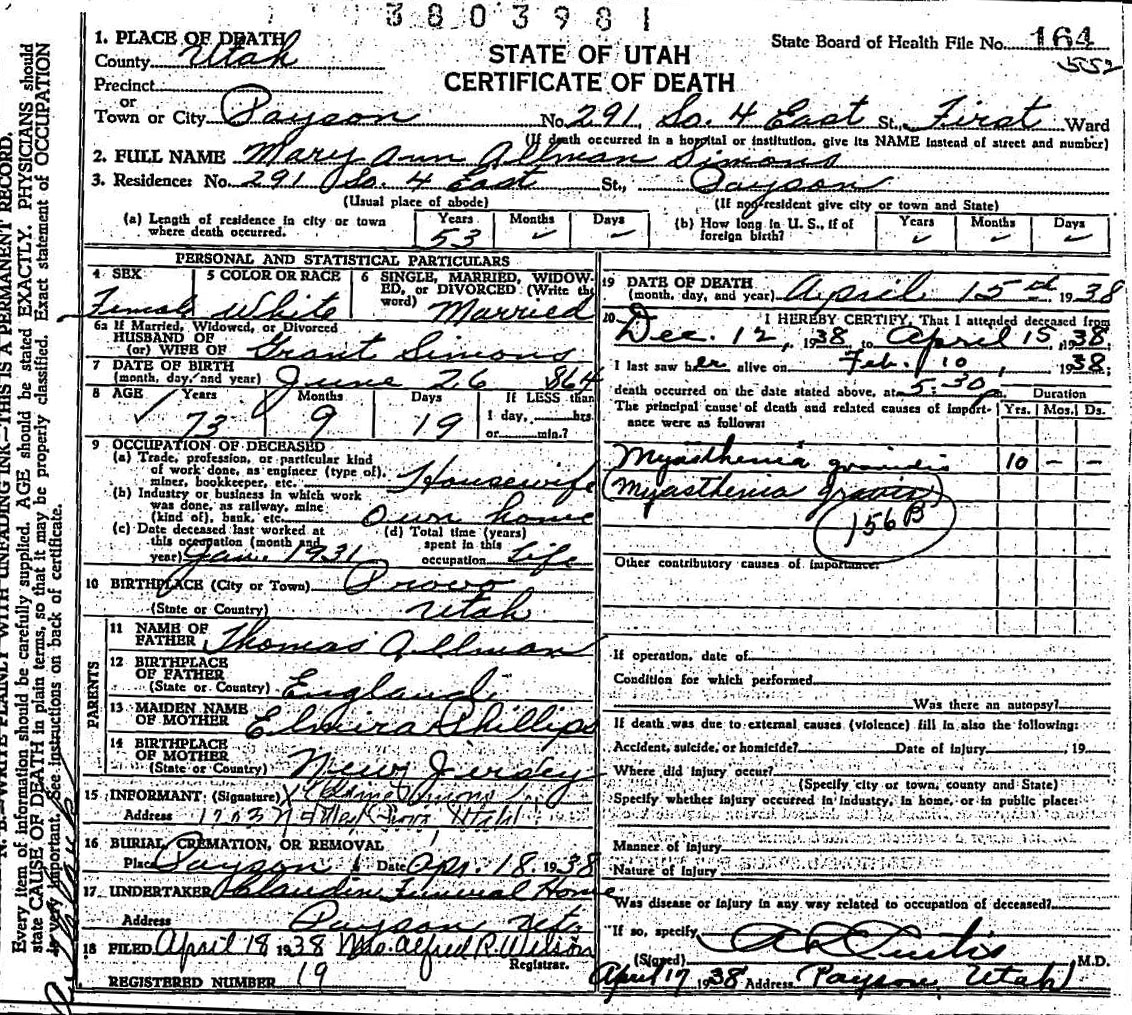 3803981
1. PLACE OF DEATH
County Utah
STATE OF UTAH
CERTIFICATE OF DEATH
State Board of Health File No. 164
552
Precinct
or
Town or City Payson No. 291 So. 4 East St., First Ward
(If death occurred in a hospital or institution, give its NAME instead of street and number)
2. FULL NAME Mary Ann Allman Simons
3. Residence: No. 291 So. 4 East St., Payson
(Usual place of abode) (If non-resident give city or town and State)
(a) Length of residence in city or town where death occurred. Years 53 Months ✓ Days ✓
(b) How long in U. S., if of foreign birth? Years ✓ Months ✓ Days ✓
PERSONAL AND STATISTICAL PARTICULARS
4 SEX Female
5 COLOR OR RACE White
6 SINGLE, MARRIED, WIDOWED, or DIVORCED (Write the word) Married
6a If Married, Widowed, or Divorced
HUSBAND OF
(or) WIFE OF Grant Simons
7 DATE OF BIRTH
(month, day, and year) June 26 1864
8 AGE Years 73 Months 9 Days 19
If LESS than
1 day, hrs.
or min.?
9 OCCUPATION OF DECEASED
(a) Trade, profession, or particular kind
of work done, as engineer (type of),
miner, bookkeeper, etc. Housewife
(b) Industry or business in which work
was done, as railway, mine
(kind of), bank, etc. Own home
(c) Date deceased last worked at
this occupation (month and
year) Jan. 1931
(d) Total time (years)
spent in this
occupation Life
10 BIRTHPLACE (City or Town) Provo
(State or Country) Utah
PARENTS
11 NAME OF
FATHER Thomas Allman
12 BIRTHPLACE
OF FATHER
(State or Country) England
13 MAIDEN NAME
OF MOTHER Elmira Phillips
14 BIRTHPLACE
OF MOTHER
(State or Country) New Jersey
15 INFORMANT (Signature)
Address Utah
16 BURIAL, CREMATION, OR REMOVAL
Place Payson Date Apr. 18, 1938
17 UNDERTAKER Funeral Home
Address Payson
18 FILED April 18 1938 Mrs. Alfred R. Wilson
Registrar.
REGISTERED NUMBER 19
19 DATE OF DEATH
(month, day, and year) April 15th 1938
20 I HEREBY CERTIFY, That I attended deceased from
Dec. 12, 1938, to April 15, 1938;
I last saw her alive on Feb. 10, 1938;
death occurred on the date stated above, at 5:30 p m.
The principal cause of death and related causes of importance were as follows:
Duration
Yrs. Mos. Ds.
Myasthenia gravis 10 - -
(Myasthenia gravis)
156 B
Other contributory causes of importance:
If operation, date of
Condition for which performed
Was there an autopsy?
If death was due to external causes (violence) fill in also the following:
Accident, suicide, or homicide? Date of injury 19
Where did injury occur?
(Specify city or town, county and State)
Specify whether injury occurred in industry, in home, or in public place:
Manner of injury
Nature of injury
Was disease or injury in any way related to occupation of deceased?
If so, specify
(Signed) Curtis M.D.
April 17 1938 Address Payson, Utah
N. B.—WRITE PLAINLY WITH UNFADING INK—THIS IS A PERMANENT RECORD.
Every item of information should be carefully supplied. AGE should be stated EXACTLY. PHYSICIANS should
state CAUSE OF DEATH in plain terms, so that it may be properly classified. Exact statement of OCCUPATION
is very important. See instructions on back of certificate.